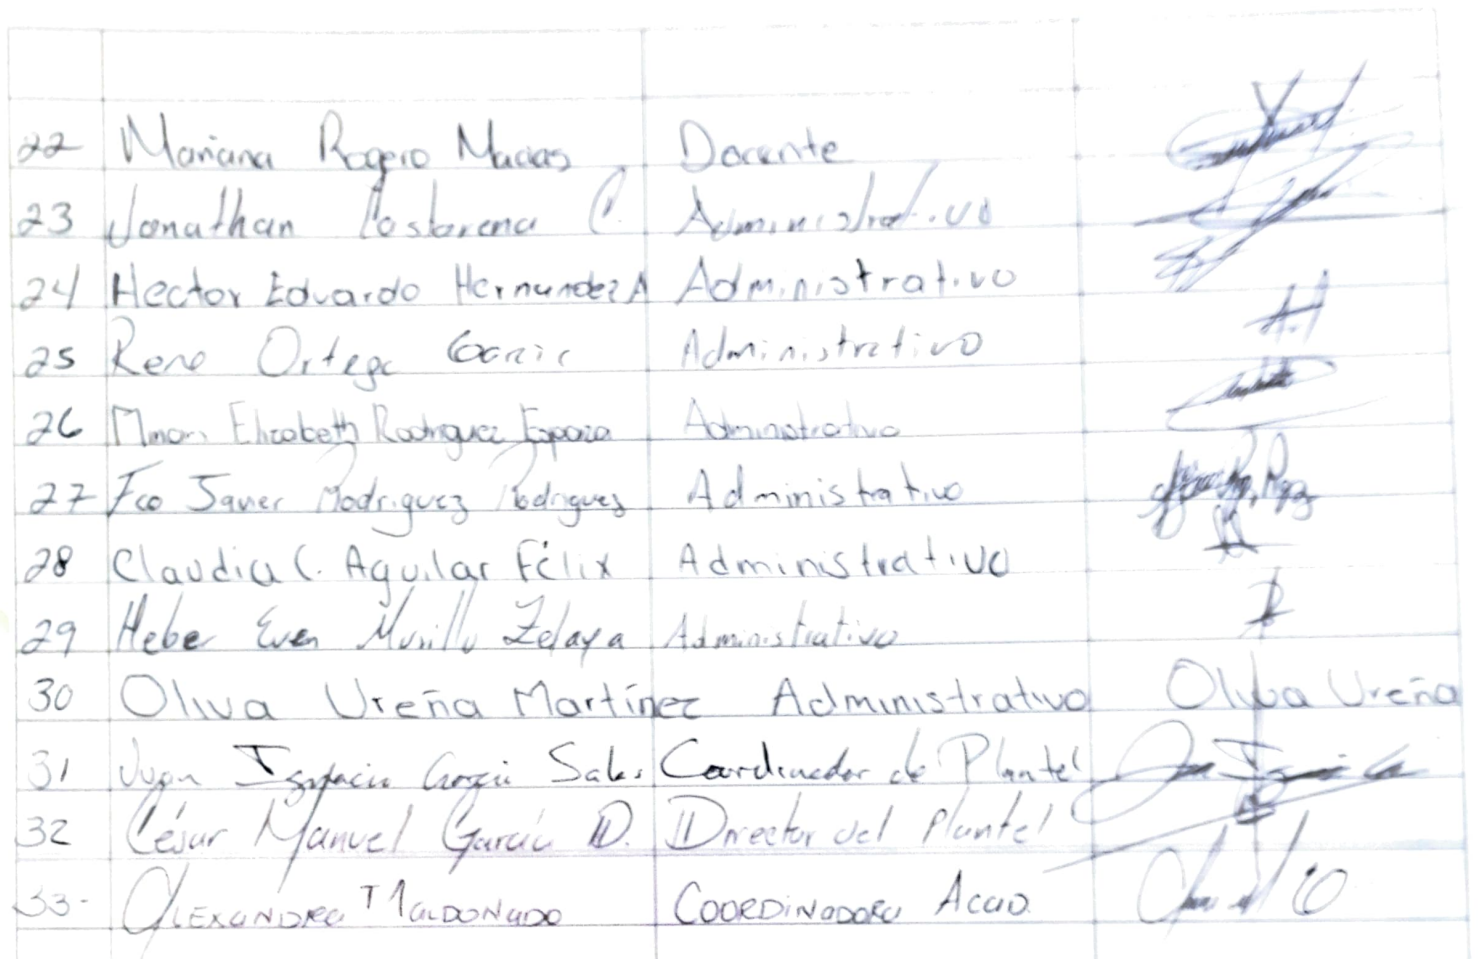 22 Mariana Rogero Macias Docente
23 Jonathan Costorena C. Administrativo
24 Hector Eduardo Hernandez A Administrativo
25 Rene Ortega Garcia Administrativo
26 Elizabeth Rodriguez Esparza Administrativo
27 Fco Javier Rodriguez Rodriguez Administrativo
28 Claudia C. Aguilar Félix Administrativo
29 Heber Even Murillo Zelaya Administrativo
30 Oliva Ureña Martínez Administrativo Oliva Ureña
31 Juan Ignacio Garcia Salas Coordinador de Plantel
32 César Manuel García D. Director del Plantel
33- ALEXANDRA MALDONADO COORDINADORA ACAD.